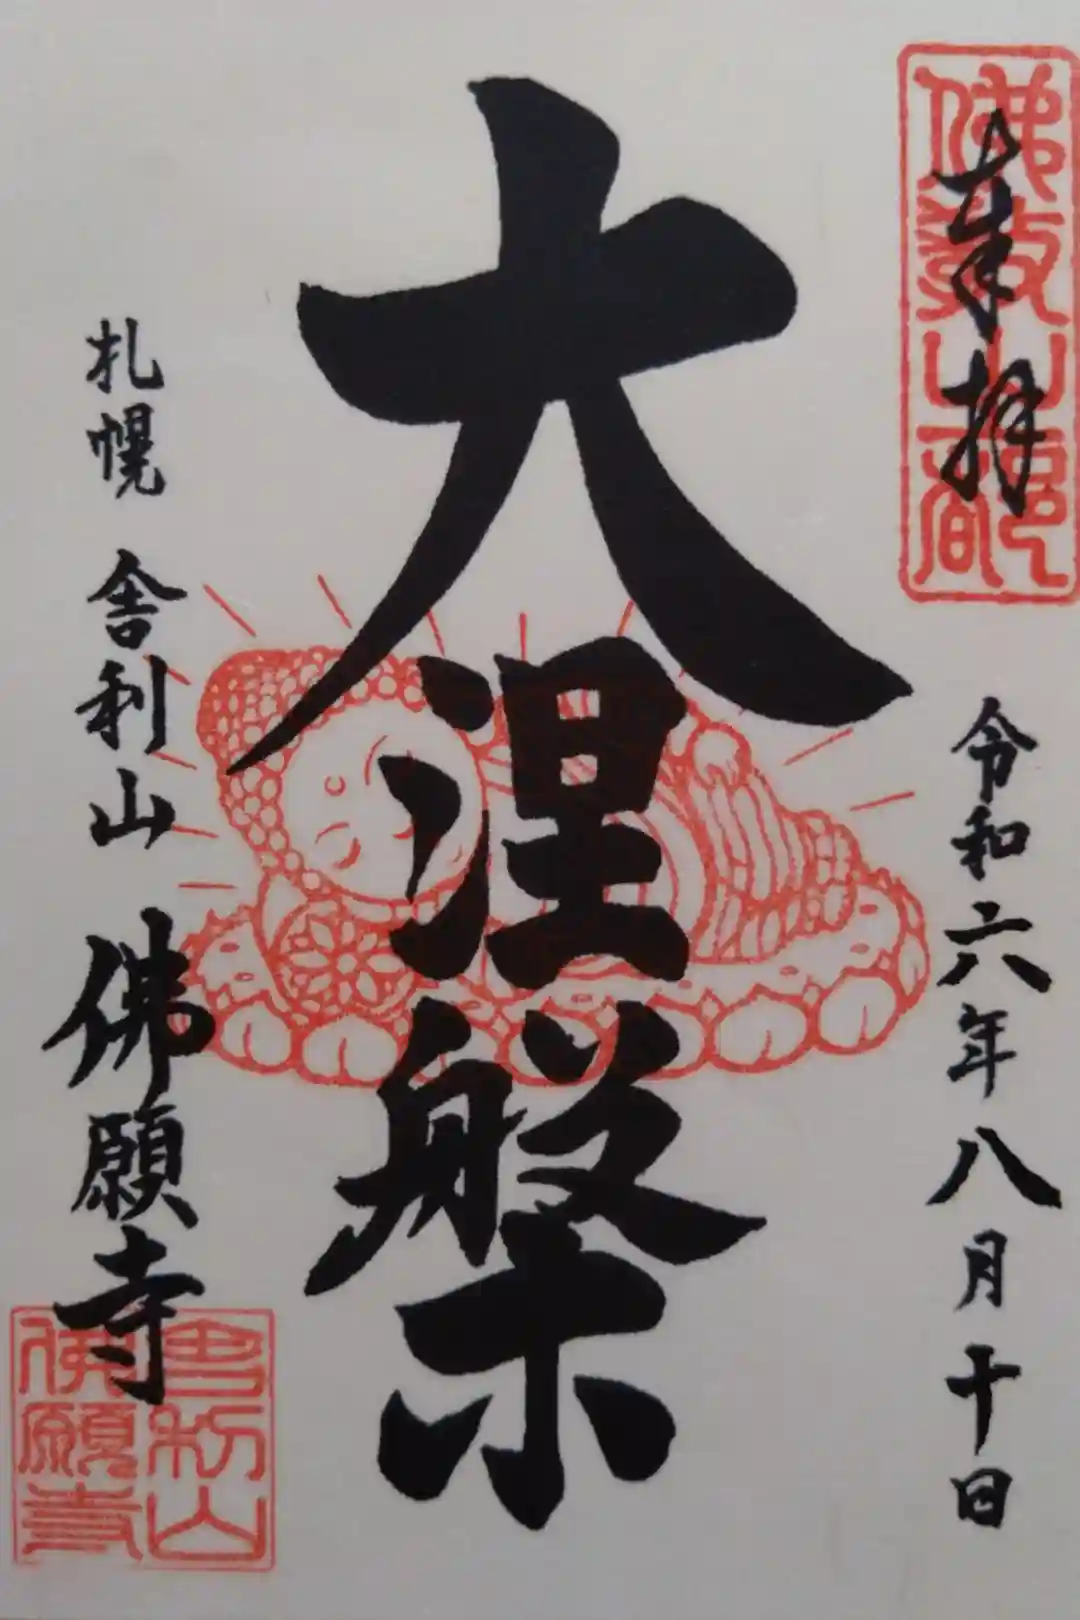 奉拝
令和六年八月十日
大涅槃
札幌 舎利山 佛願寺
舎利山
佛願寺